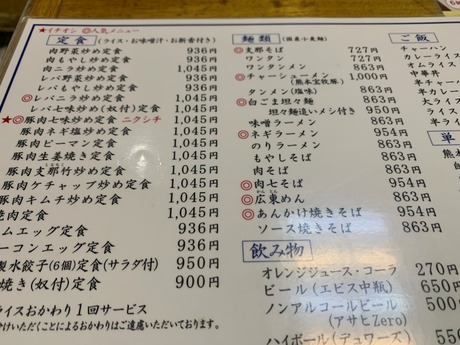 ★イチオシ ◎人気メニュー
定食 (ライス・お味噌汁・お新香付き)
肉野菜炒め定食 936円
肉もやし炒め定食 936円
肉ニラ炒め定食 1,045円
レバ野菜炒め定食 936円
レバもやし炒め定食 936円
◎レバニラ炒め定食 1,045円
レバ味噌炒め(べ付)定食 1,045円
★◎豚肉七味炒め定食 ニクシチ 1,045円
豚肉ネギ塩炒め定食 1,045円
豚肉ピーマン定食 1,045円
豚肉生姜焼き定食 1,045円
豚肉支那竹炒め定食 1,045円
豚肉ケチャップ炒め定食 1,045円
豚肉キムチ炒め定食 1,045円
焼肉定食 1,045円
ムエッグ定食 936円
ーコンエッグ定食 936円
製水餃子(6個)定食(サラダ付) 950円
焼き(奴付)定食 900円
イスおかわり1回サービス
いただくことによるおかわりはご遠慮いただいております。
麺類 (国産小麦麺)
◎支那そば 727円
ワンタン 727円
ワンタンメン 863円
◎チャーシューメン 1,000円
(熊本室牧豚)
タンメン(塩味) 863円
◎白ごま坦々麺 863円
坦々麺追いメシ付き 950円
味噌ラーメン 863円
◎ネギラーメン 863円
のりラーメン 863円
もやしそば 863円
肉そば 863円
◎肉七そば 954円
◎広東めん 863円
◎あんかけ焼きそば 954円
ソース焼きそば 863円
飲み物
オレンジジュース・コーラ 270円
ビール(エビス中瓶) 650円
ノンアルコールビール 500
(アサヒZero)
ハイボール(デュワーズ) 550
ご飯
チャーハン
カレーライス
オムライス
中華丼
半チャーハン
半カレー
大ライス
ライス
半ライス
単